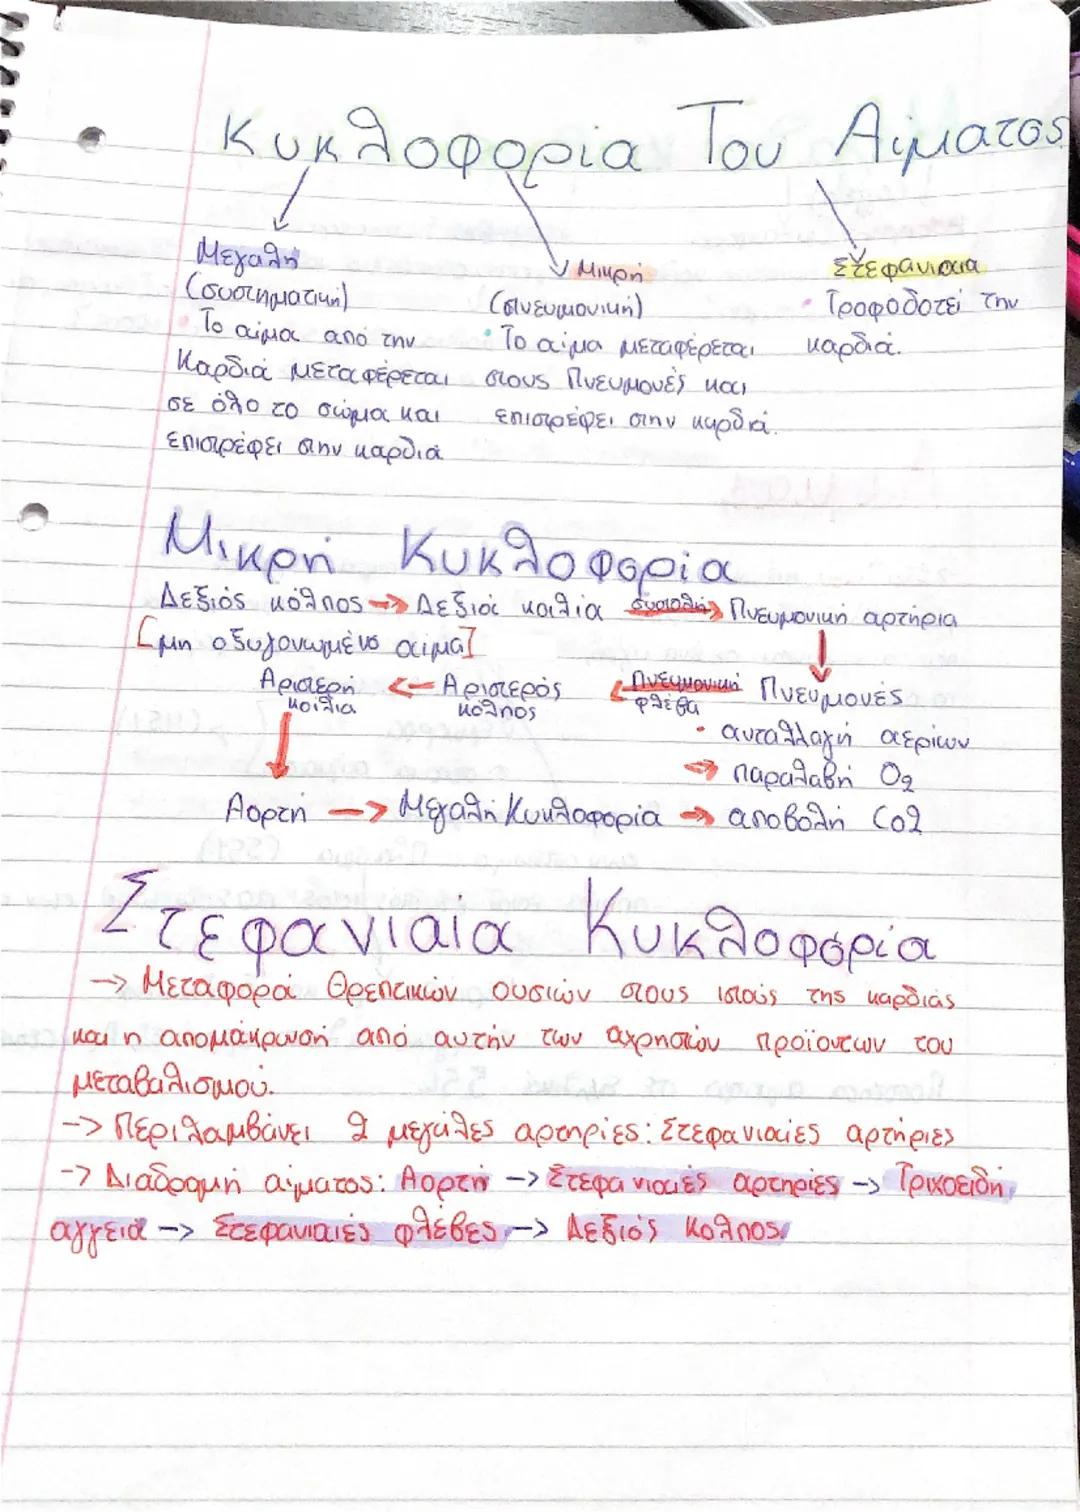 Κυκλοφορία Του Αίματος
Μεγαλή
(συστηματική)
• Το αίμα από την
Καρδιά μεταφέρεται
σε όλο το σώμα και
επιστρέφει στην καρδιά
Μικρή
(πνευμονική)
• Το αίμα μεταφέρεται
στους Πνευμονές και
επιστρέφει στην καρδιά.
Στεφανιαια
• Τροφοδοτεί την
καρδιά.
Μικρή Κυκλοφορία
Δεξιός κόλπος → Δεξιά κοιλία συστολή → Πνευμονική αρτήρια
[μη οξυγονωμένο αίμα]
Αριστερή κοιλια ← Αριστερός κόλπος ← Πνευμονική φλέβα Πνευμονές
• ανταλλαγή αερίων
→ παραλαβή O2
Αορτή → Μεγαλή Κυκλοφορία → αποβολή Co2
Στεφανιαία Κυκλοφορία
→ Μεταφορά Θρεπτικών ουσιών στους ιστούς της καρδιάς
και η απομάκρυνσή από αυτήν των αχρηστων προϊοντων του
μεταβαλισμού.
→ Περιλαμβάνει 2 μεγάλες αρτηρίες: Στεφανιαιές αρτήριες
→ Διαδρομή αίματος: Αορτή → Στεφανιαιές αρτηρίες → Τριχοειδή
αγγειά → Στεφανιαιές φλέβες → Δεξιός κολπος